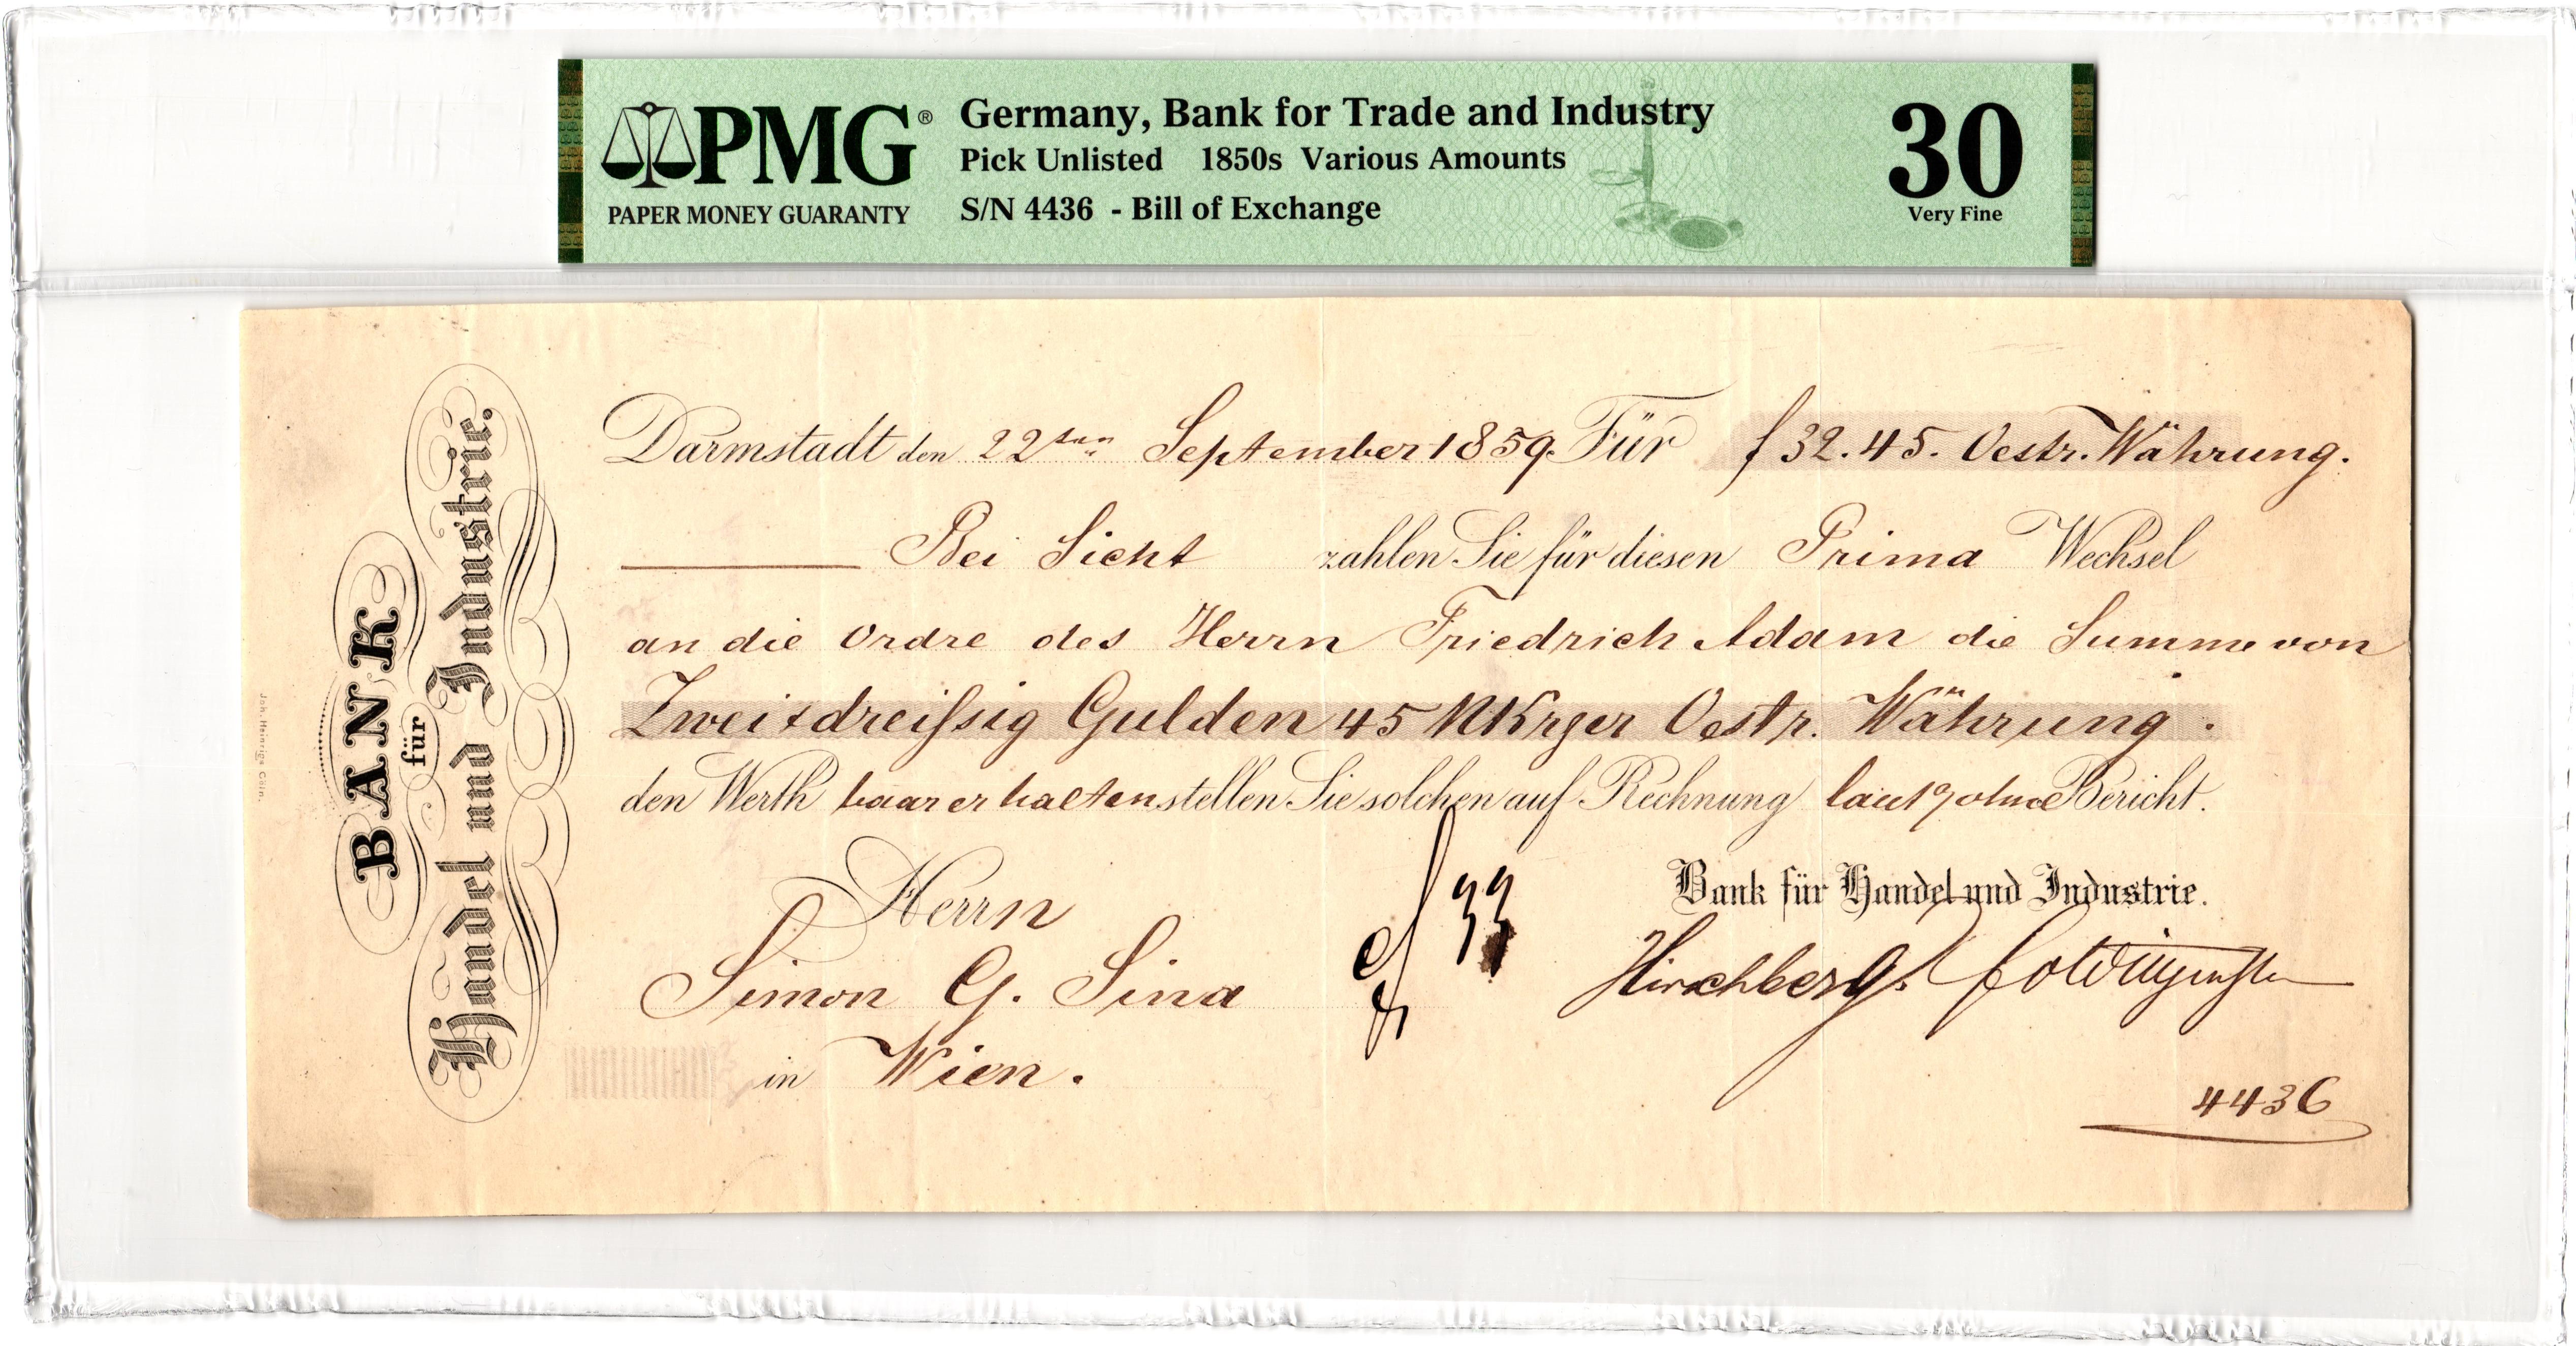 PMG®
PAPER MONEY GUARANTY
Germany, Bank for Trade and Industry
Pick Unlisted 1850s Various Amounts
S/N 4436 - Bill of Exchange
30
Very Fine
BANK
für
Handel und Industrie.
Joh. Heinrigs Cöln.
Darmstadt den 22ten September 1859. Für f 32.45. Oestr. Währung.
Bei Sicht zahlen Sie für diesen Prima Wechsel
an die Ordre des Herrn Friedrich Adam die Summe von
Zwei & dreissig Gulden 45 NKrzer Oestr. Währung.
den Werth baar erhalten stellen Sie solchen auf Rechnung laut ohne Bericht.
Herrn
Simon G. Sina
in Wien.
33
Bank für Handel und Industrie.
Hirschberg.
4436